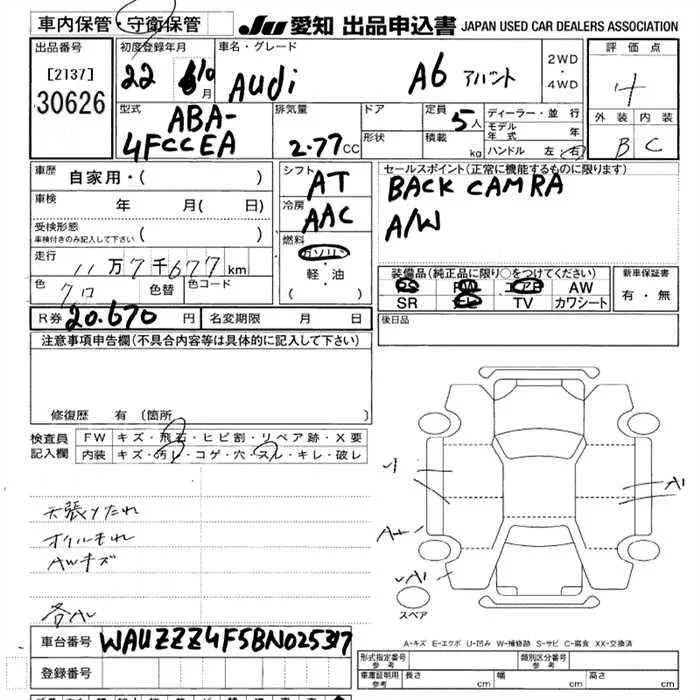 車内保管・守衛保管
JU 愛知 出品申込書 JAPAN USED CAR DEALERS ASSOCIATION
出品番号 初度登録年月 車名・グレード 2WD・4WD 評価点
[2137]
30626
22 10 月 Audi A6 アバント 4
型式 ABA-4FCCEA
排気量 2.77CC
ドア
形状
定員 5人
積載 kg
ディーラー・並行
モデル年式 年
ハンドル 左・右
外装 内装
B C
車歴 自家用・( )
車検 年 月( 日)
受検形態
車検付きのみ記入して下さい ( )
走行 11万7千677km
色 クロ 色替 色コード
シフト AT
冷房 AAC
燃料 ガソリン
軽・油
( )
セールスポイント(正常に機能するものに限ります)
BACK CAMRA
A/W
装備品(純正品に限り○をつけてください) 新車保証書
PS PW エアB AW
SR ナビ TV カワシート
有・無
R券 20.670円 名変期限 月 日
後日品
注意事項申告欄(不具合内容等は具体的に記入して下さい)
修復歴 有(箇所
検査員記入欄
FW キズ・飛石・ヒビ割・リペア跡・X要
内装 キズ・汚レ・コゲ・穴・スレ・キレ・破レ
天張りたれ
オイルもれ
AWキズ
A1
A1
スペア
A-キズ E-エクボ U-凹み W-補修跡 S-サビ C-腐食 XX-交換済
車台番号 WAUZZZ4F5BN025317
登録番号
形式指定番号 参考 類別区分番号 参考
車庫証明用 参考 長さ cm 幅 cm 高さ cm